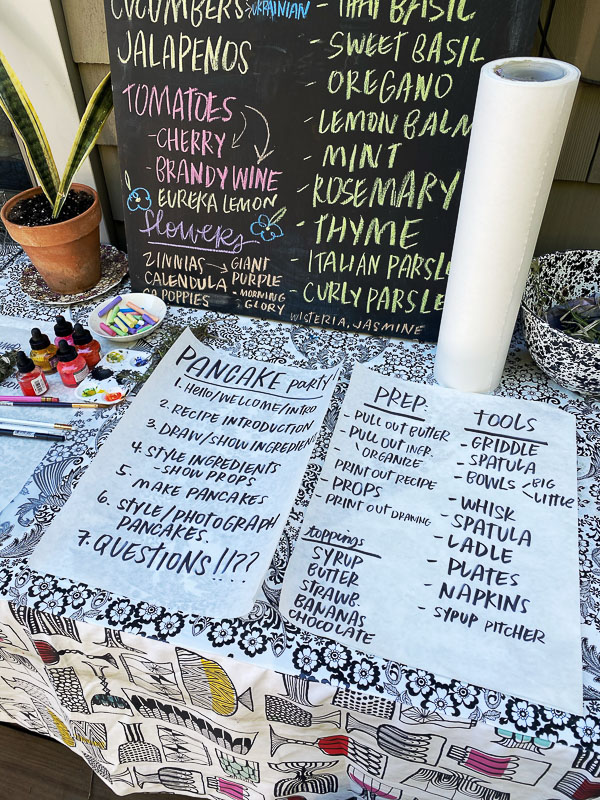 CUCUMBERS UKRAINIAN
JALAPENOS
TOMATOES
- CHERRY
- BRANDYWINE
EUREKA LEMON
flowers
ZINNIAS → GIANT PURPLE
CALENDULA
POPPIES
- MORNING GLORY
WISTERIA, JASMINE
- THAI BASIL
- SWEET BASIL
- OREGANO
- LEMON BALM
- MINT
- ROSEMARY
- THYME
- ITALIAN PARSLE
CURLY PARSLE
PANCAKE party
1. Hello/WELCOME/INTRO
2. RECIPE INTRODUCTION
3. DRAW/SHOW INGREDIENT
4. STYLE INGREDIENTS
- SHOW PROPS
5. MAKE PANCAKES
6. STYLE/PHOTOGRAPH
PANCAKES.
7. QUESTIONS!!??
PREP.
- PULL OUT BUTTER
- PULL OUT INGR.
ORGANIZE
- PRINT OUT RECIPE
- PROPS
- PRINT OUT DRAWING
toppings
SYRUP
BUTTER
STRAWB.
BANANAS
CHOCOLATE
TOOLS
- GRIDDLE
- SPATULA
- BOWLS < BIG
LITTLE
- WHISK
- SPATULA
- LADLE
- PLATES
- NAPKINS
- SYPUP PITCHER